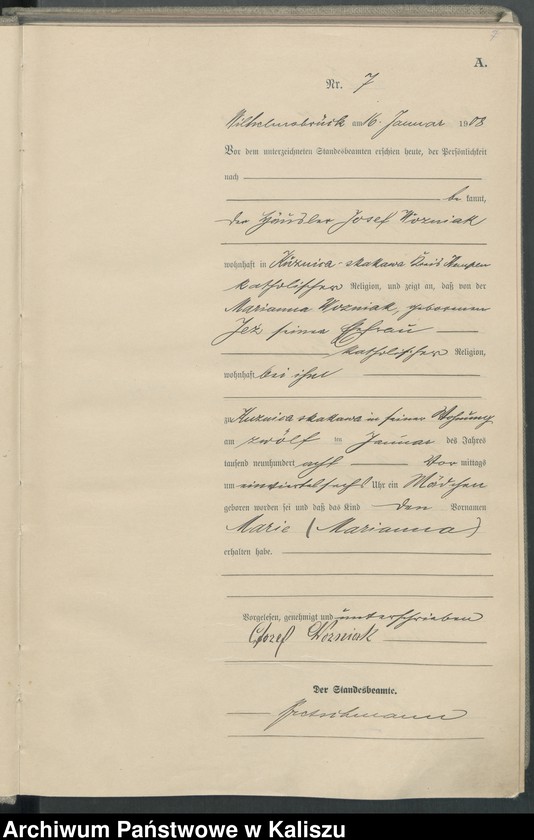 A.
Nr. 7
Wilhelmsbrück am 16. Januar 1908
Vor dem unterzeichneten Standesbeamten erschien heute, der Persönlichkeit
nach
be kannt,
der Häusler Josef Wozniak
wohnhaft in Kuznica-skakawa Kreis Kempen
katholischer Religion, und zeigt an, daß von der
Marianna Wozniak, geborenen
Jeż seiner Ehefrau
katholischer Religion,
wohnhaft bei ihm
zu Kuznica skakawa in seiner Wohnung
am zwölf ten Januar des Jahres
tausend neunhundert acht Vor mittags
um einviertelsechs Uhr ein Mädchen
geboren worden sei und daß das Kind den Vornamen
Marie (Marianna)
erhalten habe.
Vorgelesen, genehmigt und unterschrieben
Józef Wozniak
Der Standesbeamte.
Archiwum Państwowe w Kaliszu